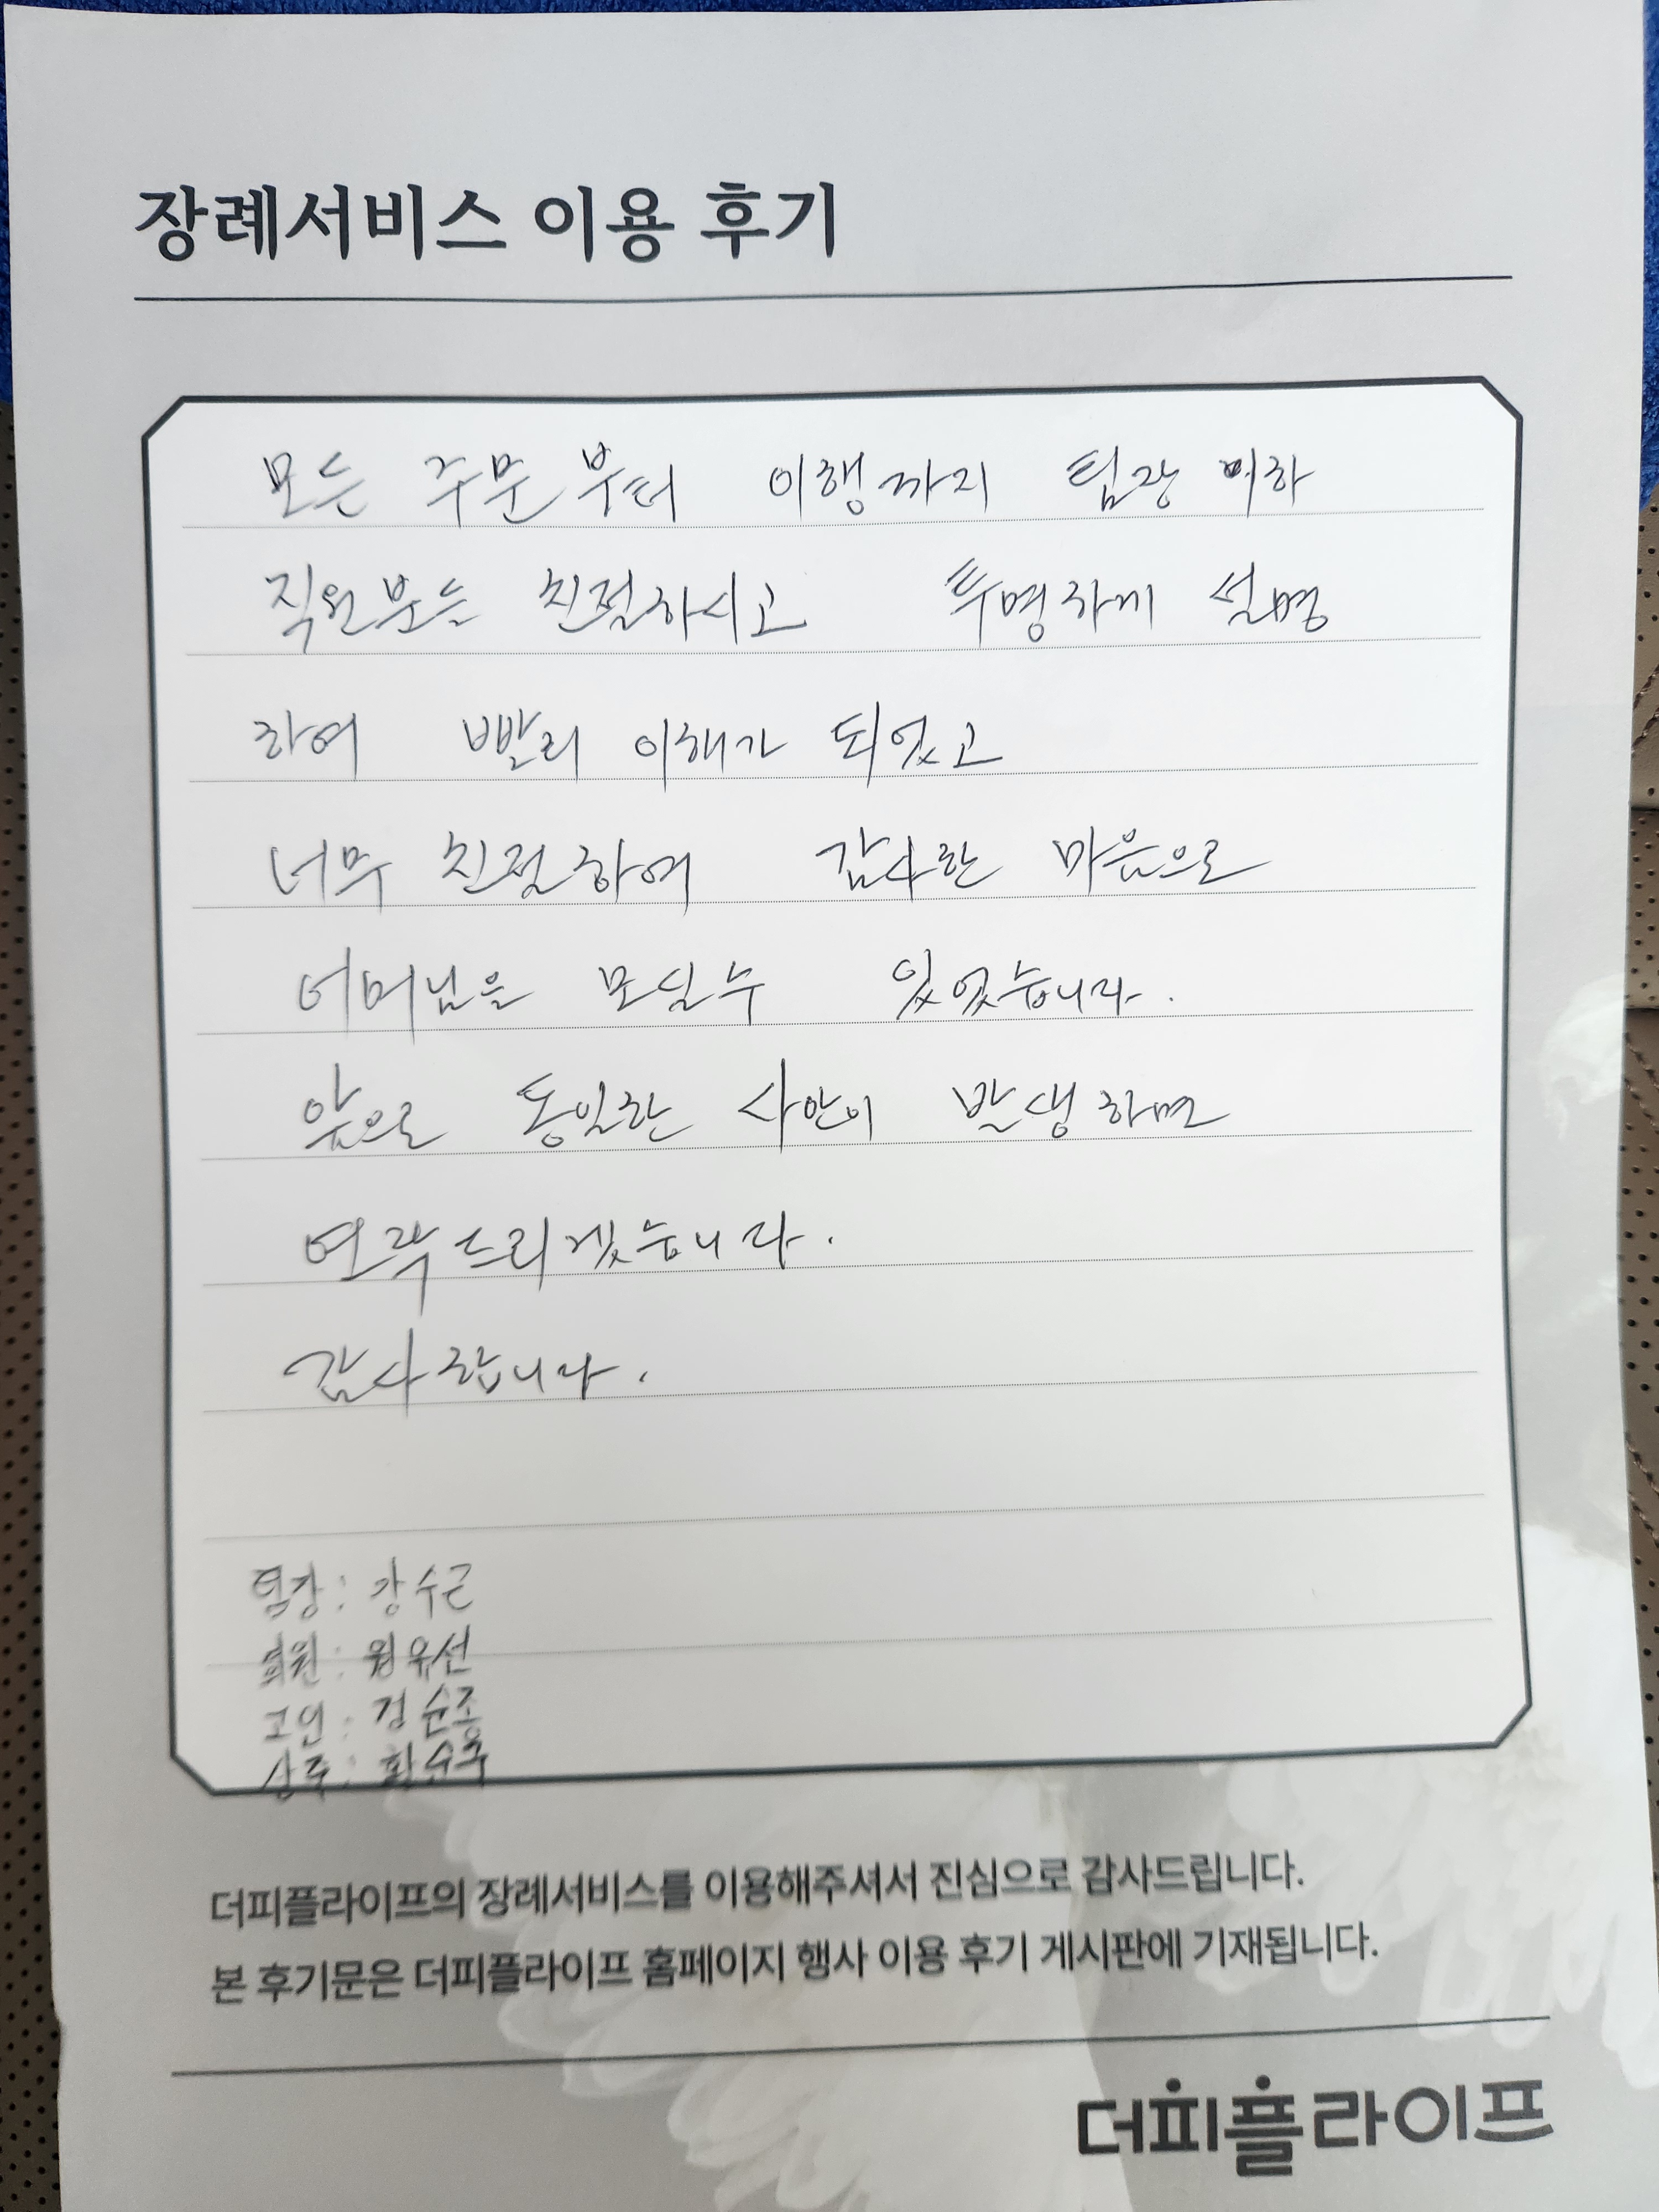 장례서비스 이용 후기
모든 주문부터 이행까지 팀장 이하
직원분들 친절하시고 투명하게 설명
하여 빨리 이해가 되었고
너무 친절하여 감사한 마음으로
어머님을 모실수 있었습니다.
앞으로 동일한 사안이 발생하면
연락드리겠습니다.
감사합니다.
팀장: 강수근
원우선
고인:
상주:
더피플라이프의 장례서비스를 이용해주셔서 진심으로 감사드립니다.
본 후기문은 더피플라이프 홈페이지 행사 이용 후기 게시판에 기재됩니다.
더피플라이프